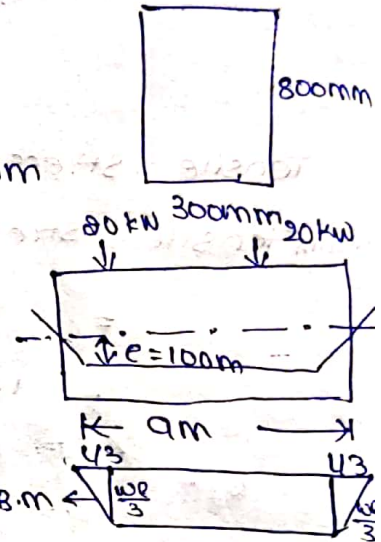 800mm
m
20kN 300mm 20kN
e=100m
9m
l/3 l/3
B.m wl/3 wl/3